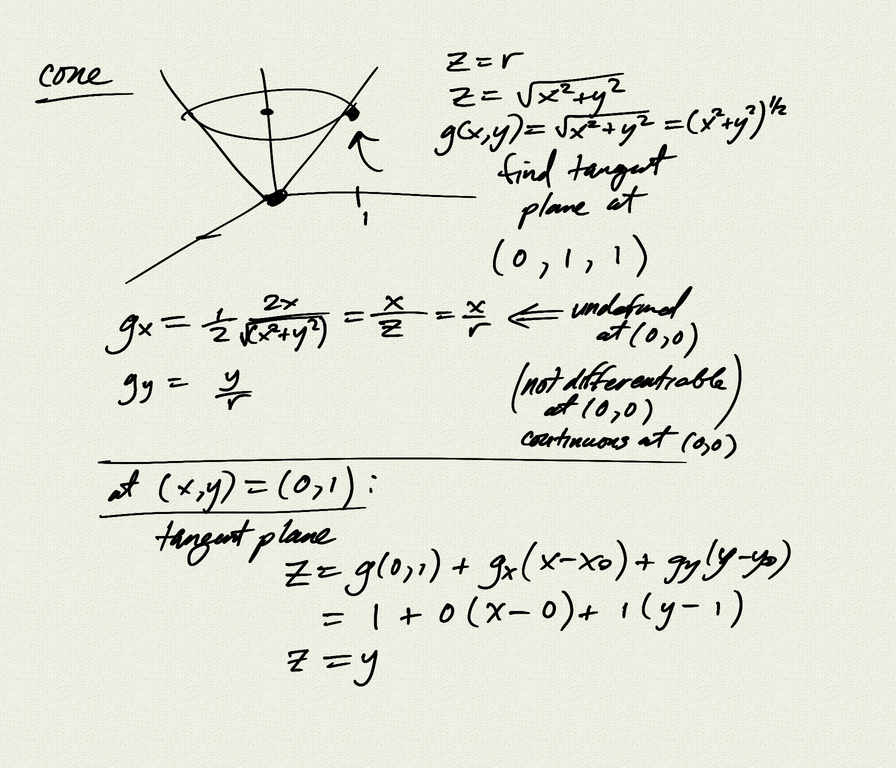 cone
z = r
z = √(x²+y²)
g(x,y) = √(x²+y²) = (x²+y²)^1/2
find tangent
plane at
(0, 1, 1)
1
gx = 1/2 2x/√(x²+y²) = x/z = x/r ⟸ undefined
at (0,0)
gy = y/r
(not differentiable
at (0,0))
continuous at (0,0)
at (x,y) = (0,1):
tangent plane
z = g(0,1) + gx(x-x0) + gy(y-y0)
= 1 + 0(x-0) + 1(y-1)
z = y